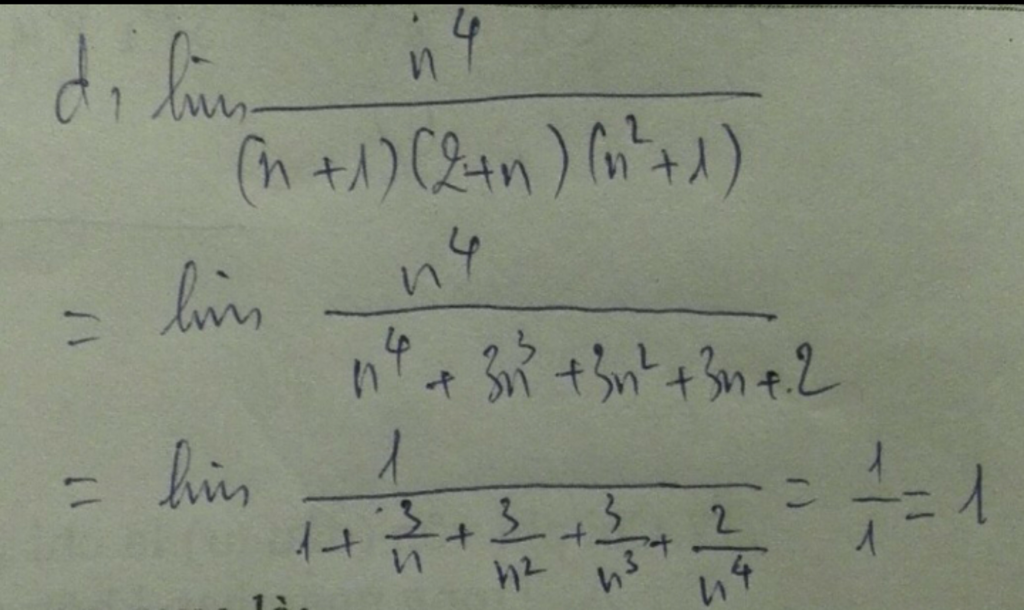 d, lim n^4 / (n+1)(2+n)(n^2+1)
= lim n^4 / n^4 + 3n^3 + 3n^2 + 3n + 2
= lim 1 / 1 + 3/n + 3/n^2 + 3/n^3 + 2/n^4 = 1/1 = 1